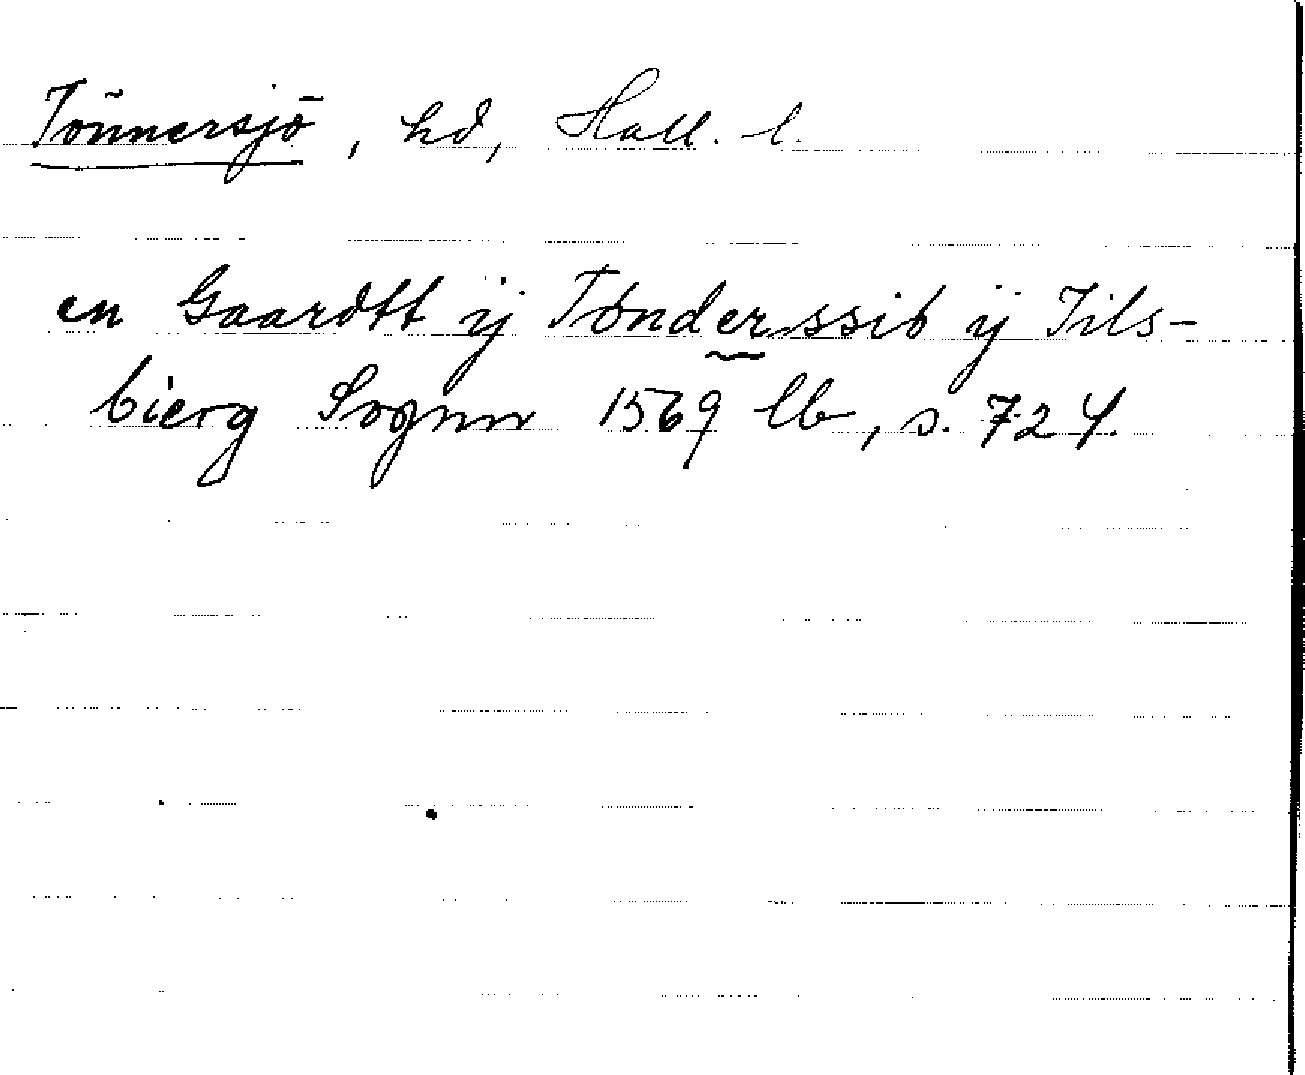 Tönnersjö, hd, Hall. l.
en Gaardtt ij Tønderssiø ij Jils-
bierg Sognn 1569 lb, s. 724.